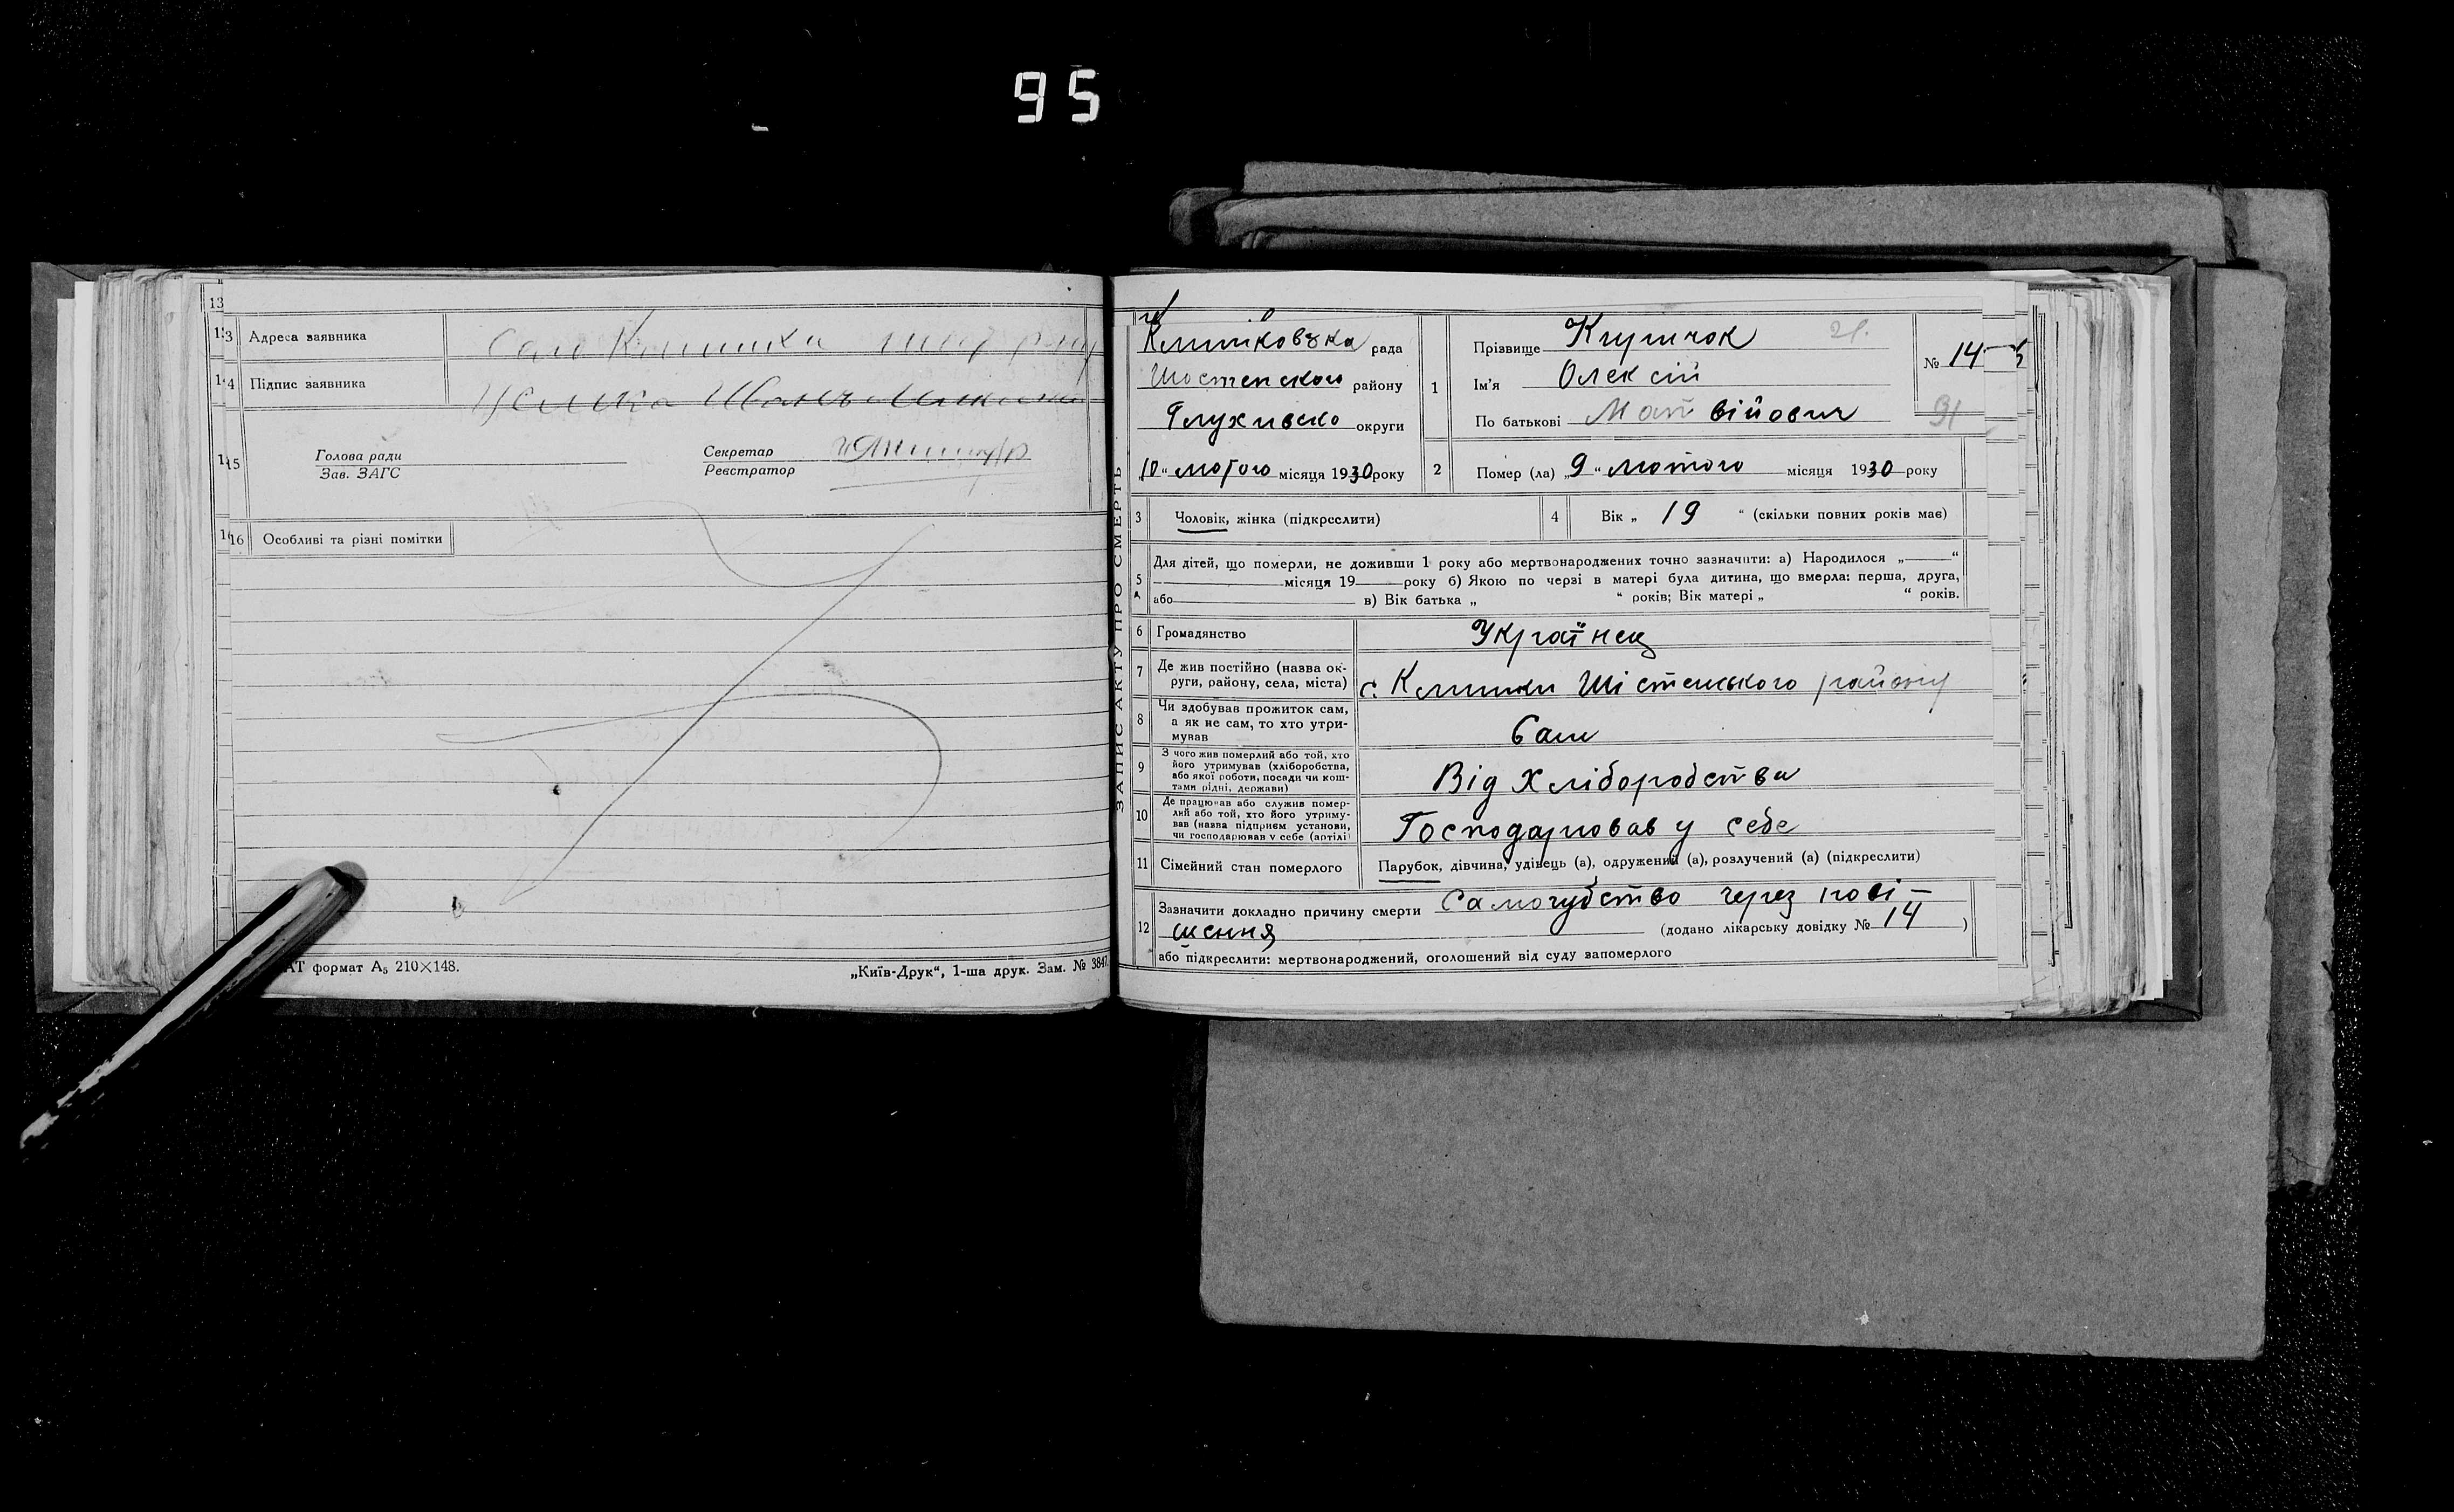 95
13
13 Адреса заявника Село
14 Підпис заявника
15 Голова ради
Зав. ЗАГС
Секретар
Реєстратор
16 Особливі та різні помітки
АТ формат А₅ 210×148.
„Київ-Друк“, 1-ша друк. Зам. № 3847
ЗАПИС АКТУ ПРО СМЕРТЬ
рада
Шостенского району
Глухивско округи
„10“ лютого місяця 1930 року
1 Прізвище
Ім'я Олексій
По батькові Матвійович
№ 14
31
2 Помер (ла) „9“ лютого місяця 1930 року
3 Чоловік, жінка (підкреслити)
4 Вік „ 19 “ (скільки повних років має)
5 Для дітей, що померли, не доживши 1 року або мертвонароджених точно зазначити: а) Народилося „ “
місяця 19 року б) Якою по черзі в матері була дитина, що вмерла: перша, друга,
або в) Вік батька „ “ років; Вік матері „ “ років.
6 Громадянство Українец
7 Де жив постійно (назва ок-
руги, району, села, міста) с. Клишки Шістенського району
8 Чи здобував прожиток сам,
а як не сам, то хто утри-
мував Сам
9 З чого жив померлий або той, хто
його утримував (хліборобства,
або якої роботи, посади чи кош-
тами рідні, держави) Від Хліборобства
10 Де працював або служив помер-
лий або той, хто його утриму-
вав (назва підприєм установи,
чи господарював у себе (артілі) Господарював у себе
11 Сімейний стан померлого Парубок, дівчина, удівець (а), одружений (а), розлучений (а) (підкреслити)
12 Зазначити докладно причину смерти Самогубство через пові-
шення (додано лікарську довідку № 14 )
або підкреслити: мертвонароджений, оголошений від суду запомерлого